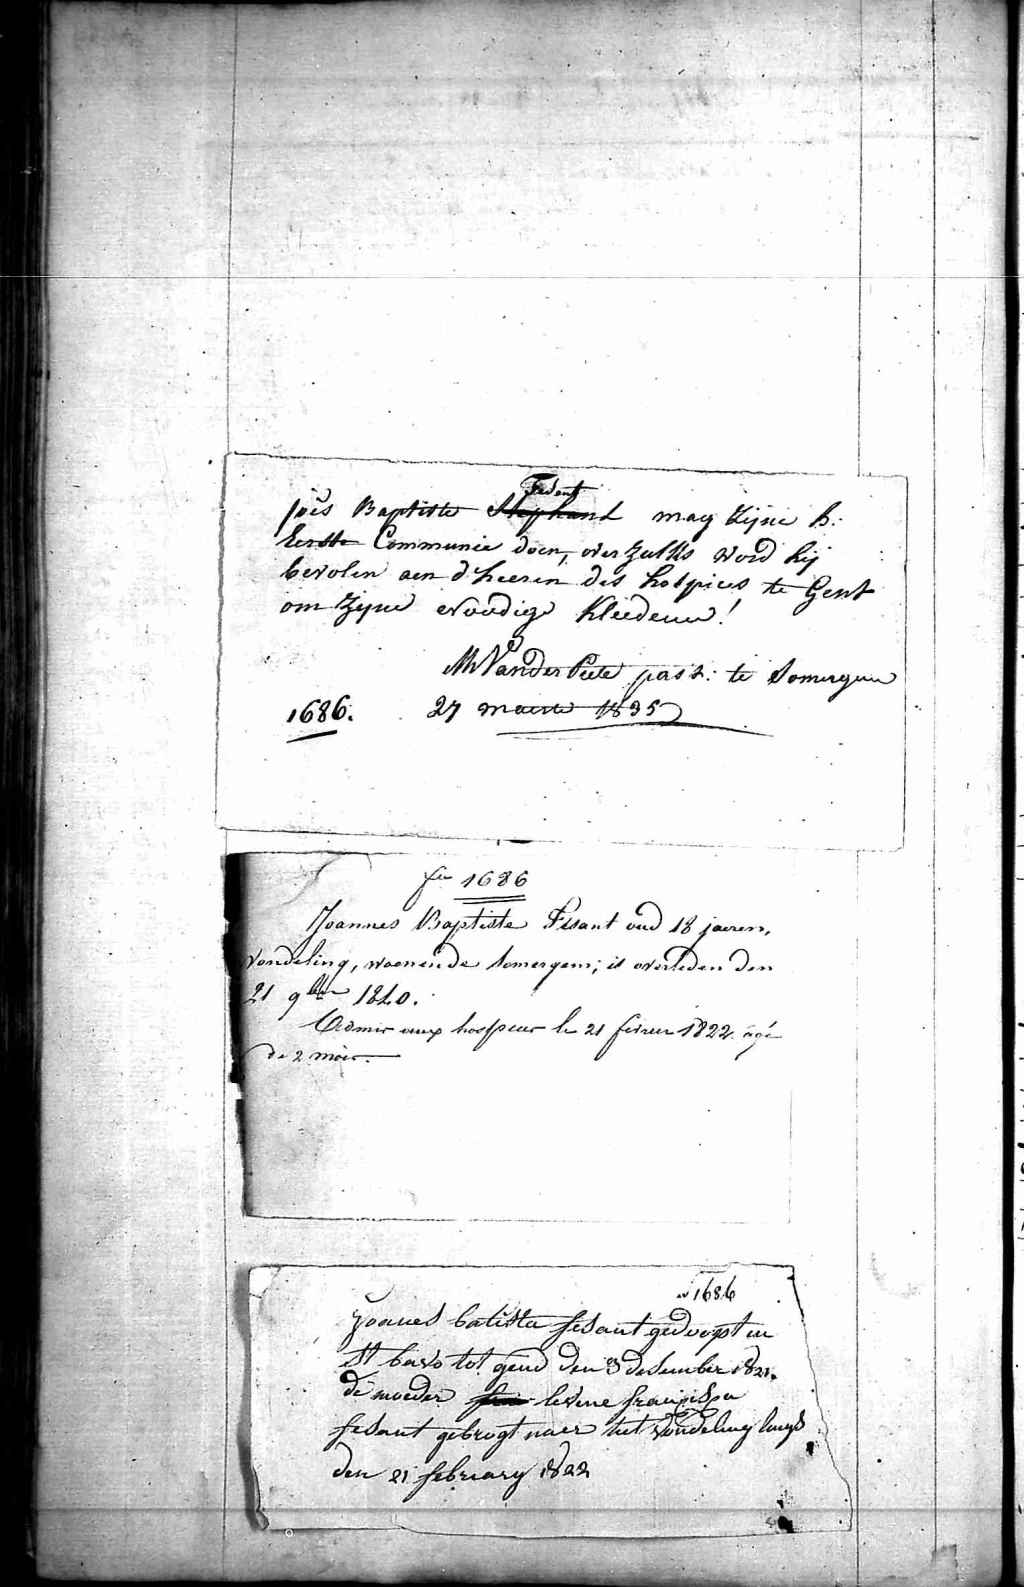 Joês Baptiste Stephant Fesant mag zijne h:
Eerste Communie doen, over zulks word hij
bevolen aen d'heeren des hospices te Gent
om zijne noodige kleederen!
VanderPiete past: te Somergem
1686. 27 maerte 1835
fn 1686
Joannes Baptiste Fesant oud 18 jaeren,
vondeling, woonende Somergem; is overleden den
21 9bre 1840.
Admis aux hospices le 21 fevrier 1822 agé
de 2 mois.
n 1686
Joanes batista fesant gedoopt in
St bavo tot gend den 3 desember 1821.
de moeder levine fransisca
fesant gebrogt naer het vondeling huys
den 21 february 1822